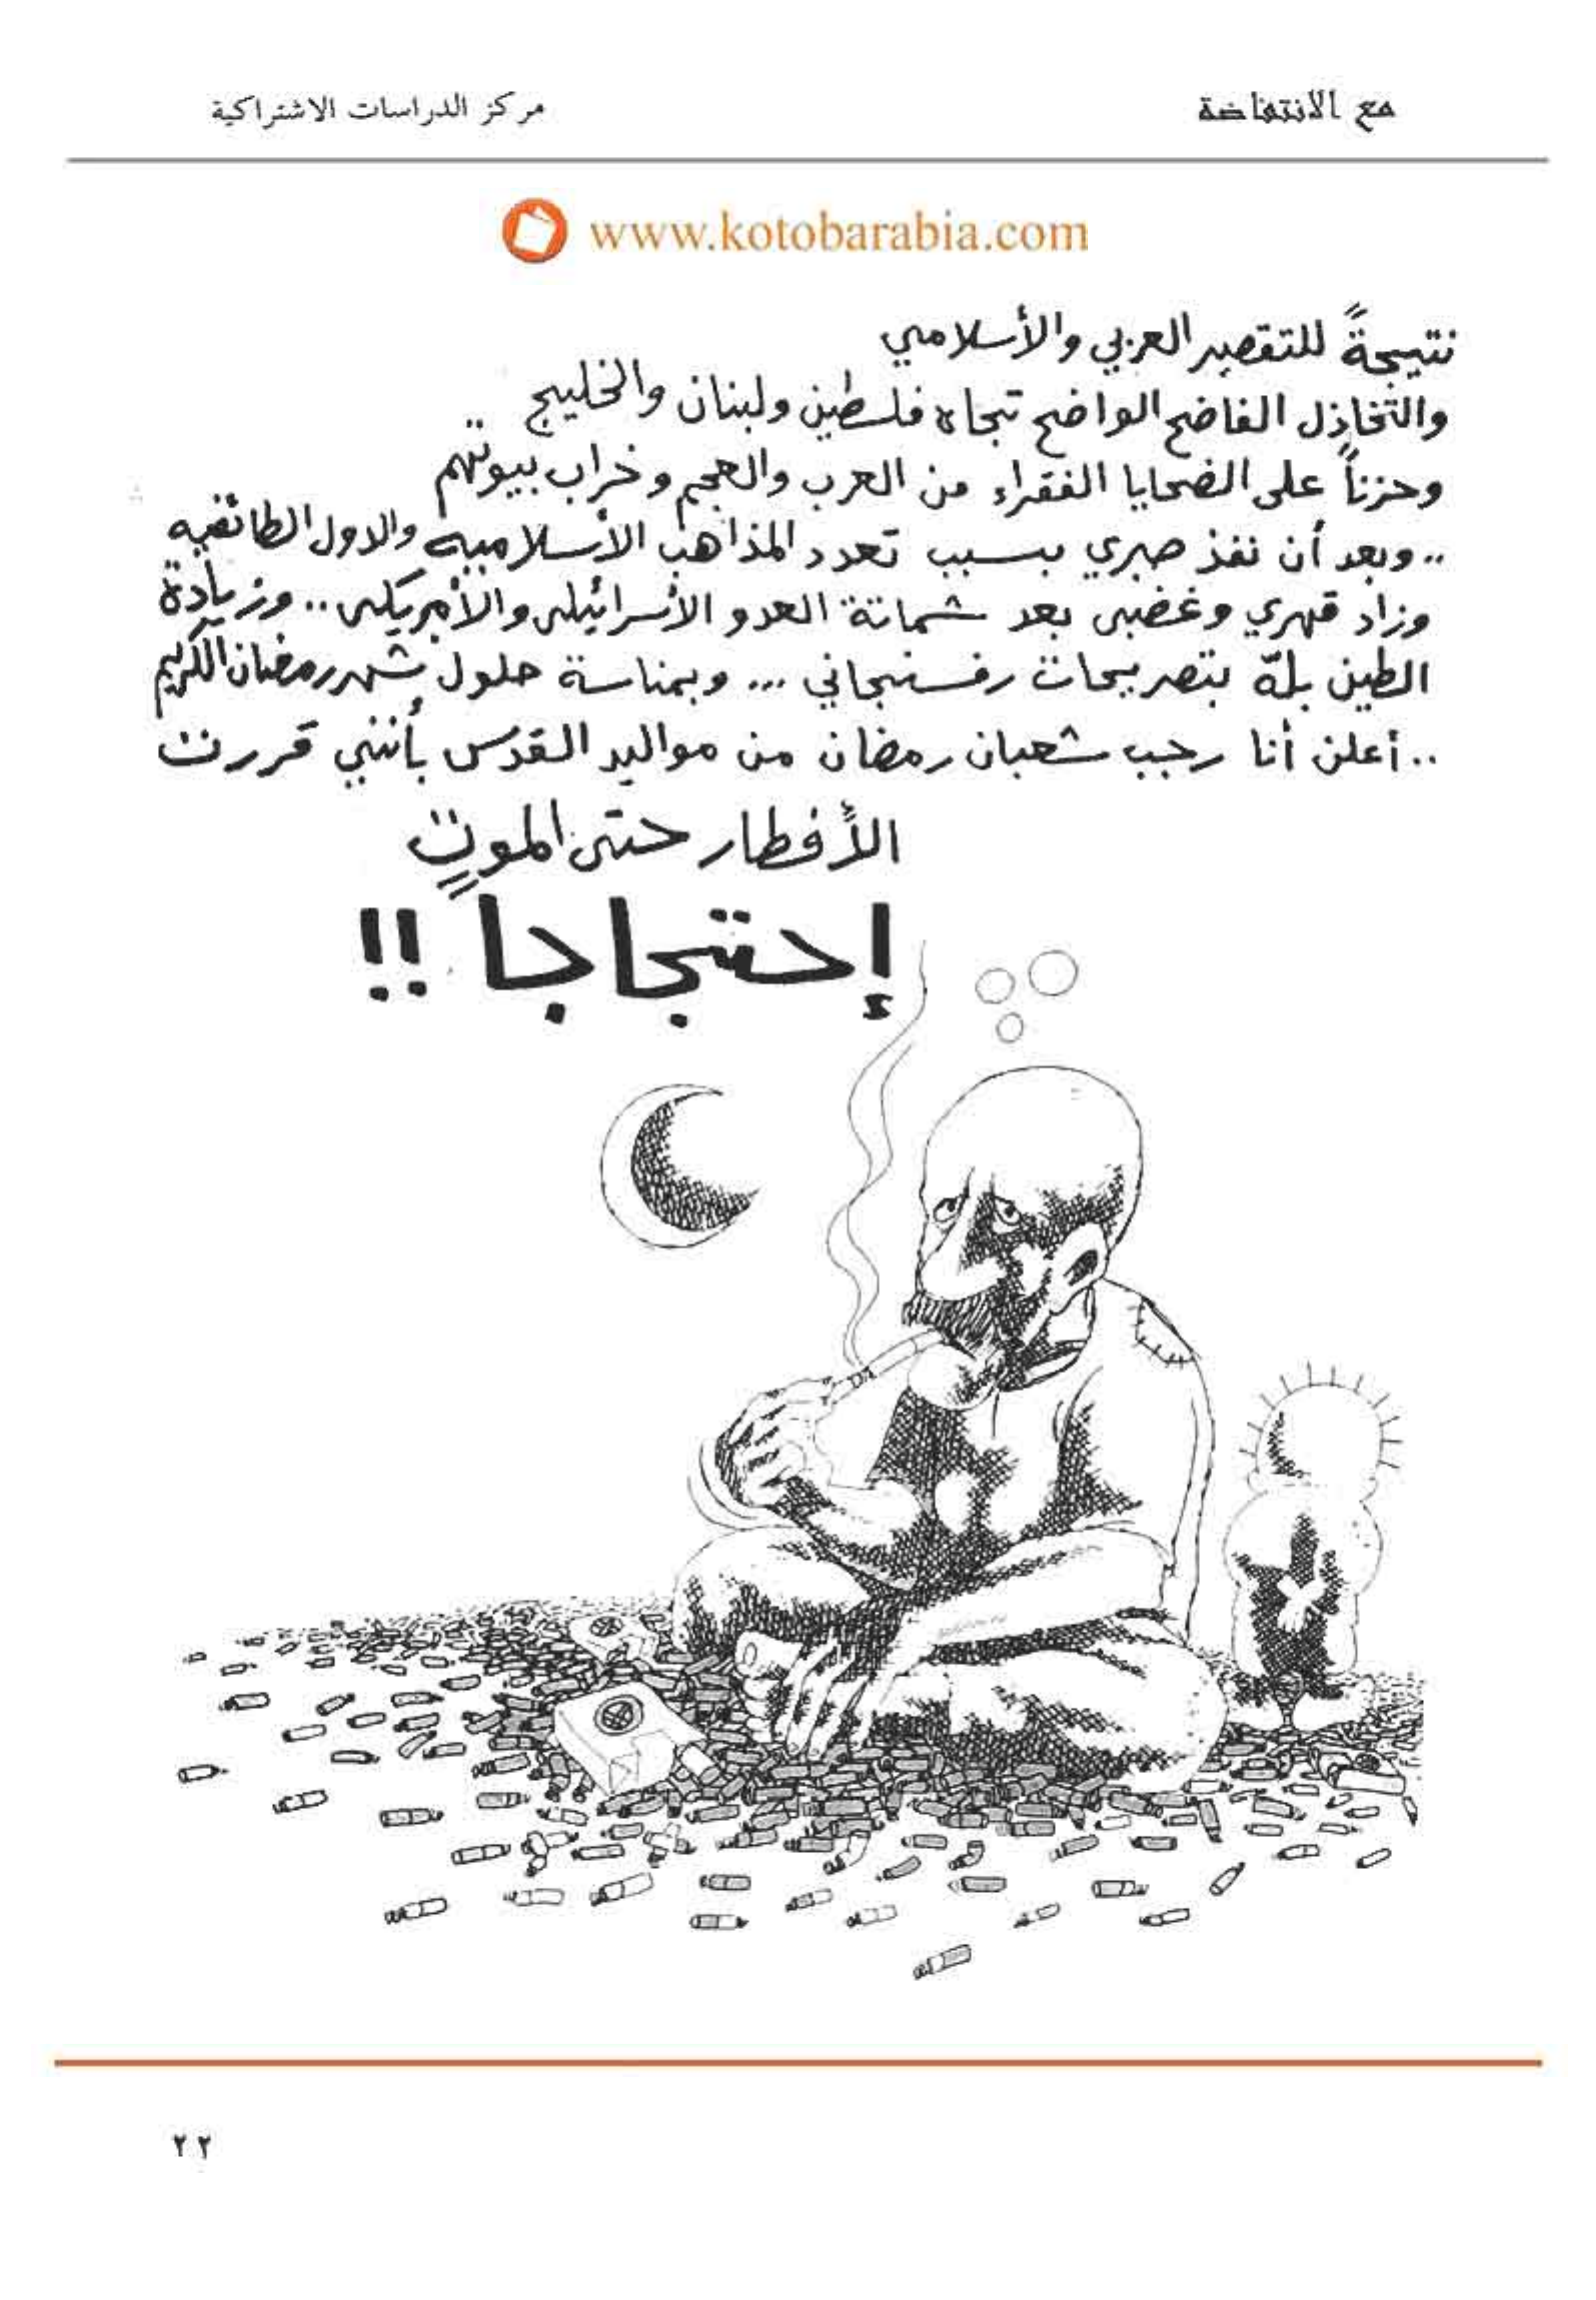 مع الانتفاضة
مركز الدراسات الاشتراكية
www.kotobarabia.com
نتيجةً للتقصير العربي والأسلامي
والتخاذل الفاضح الواضح تجاه فلسطين ولبنان والخليج ..
وحزناً على الضحايا الفقراء من العرب والعجم وخراب بيوتهم
.. وبعد أن نفذ صبري بسبب تعدد المذاهب الأسلاميه والدول الطائفيه
وزاد قهري وغضبي بعد شماتة العدو الأسرائيلي والأمريكي .. وزيادة
الطين بلّه بتصريحات رفسنجاني ... وبمناسة حلول شهر رمضان الكريم
.. أعلن أنا رجب شعبان رمضان من مواليد القدس بأنني قررت
الأفطار حتى الموت
إحتجاجاً !!
٢٢